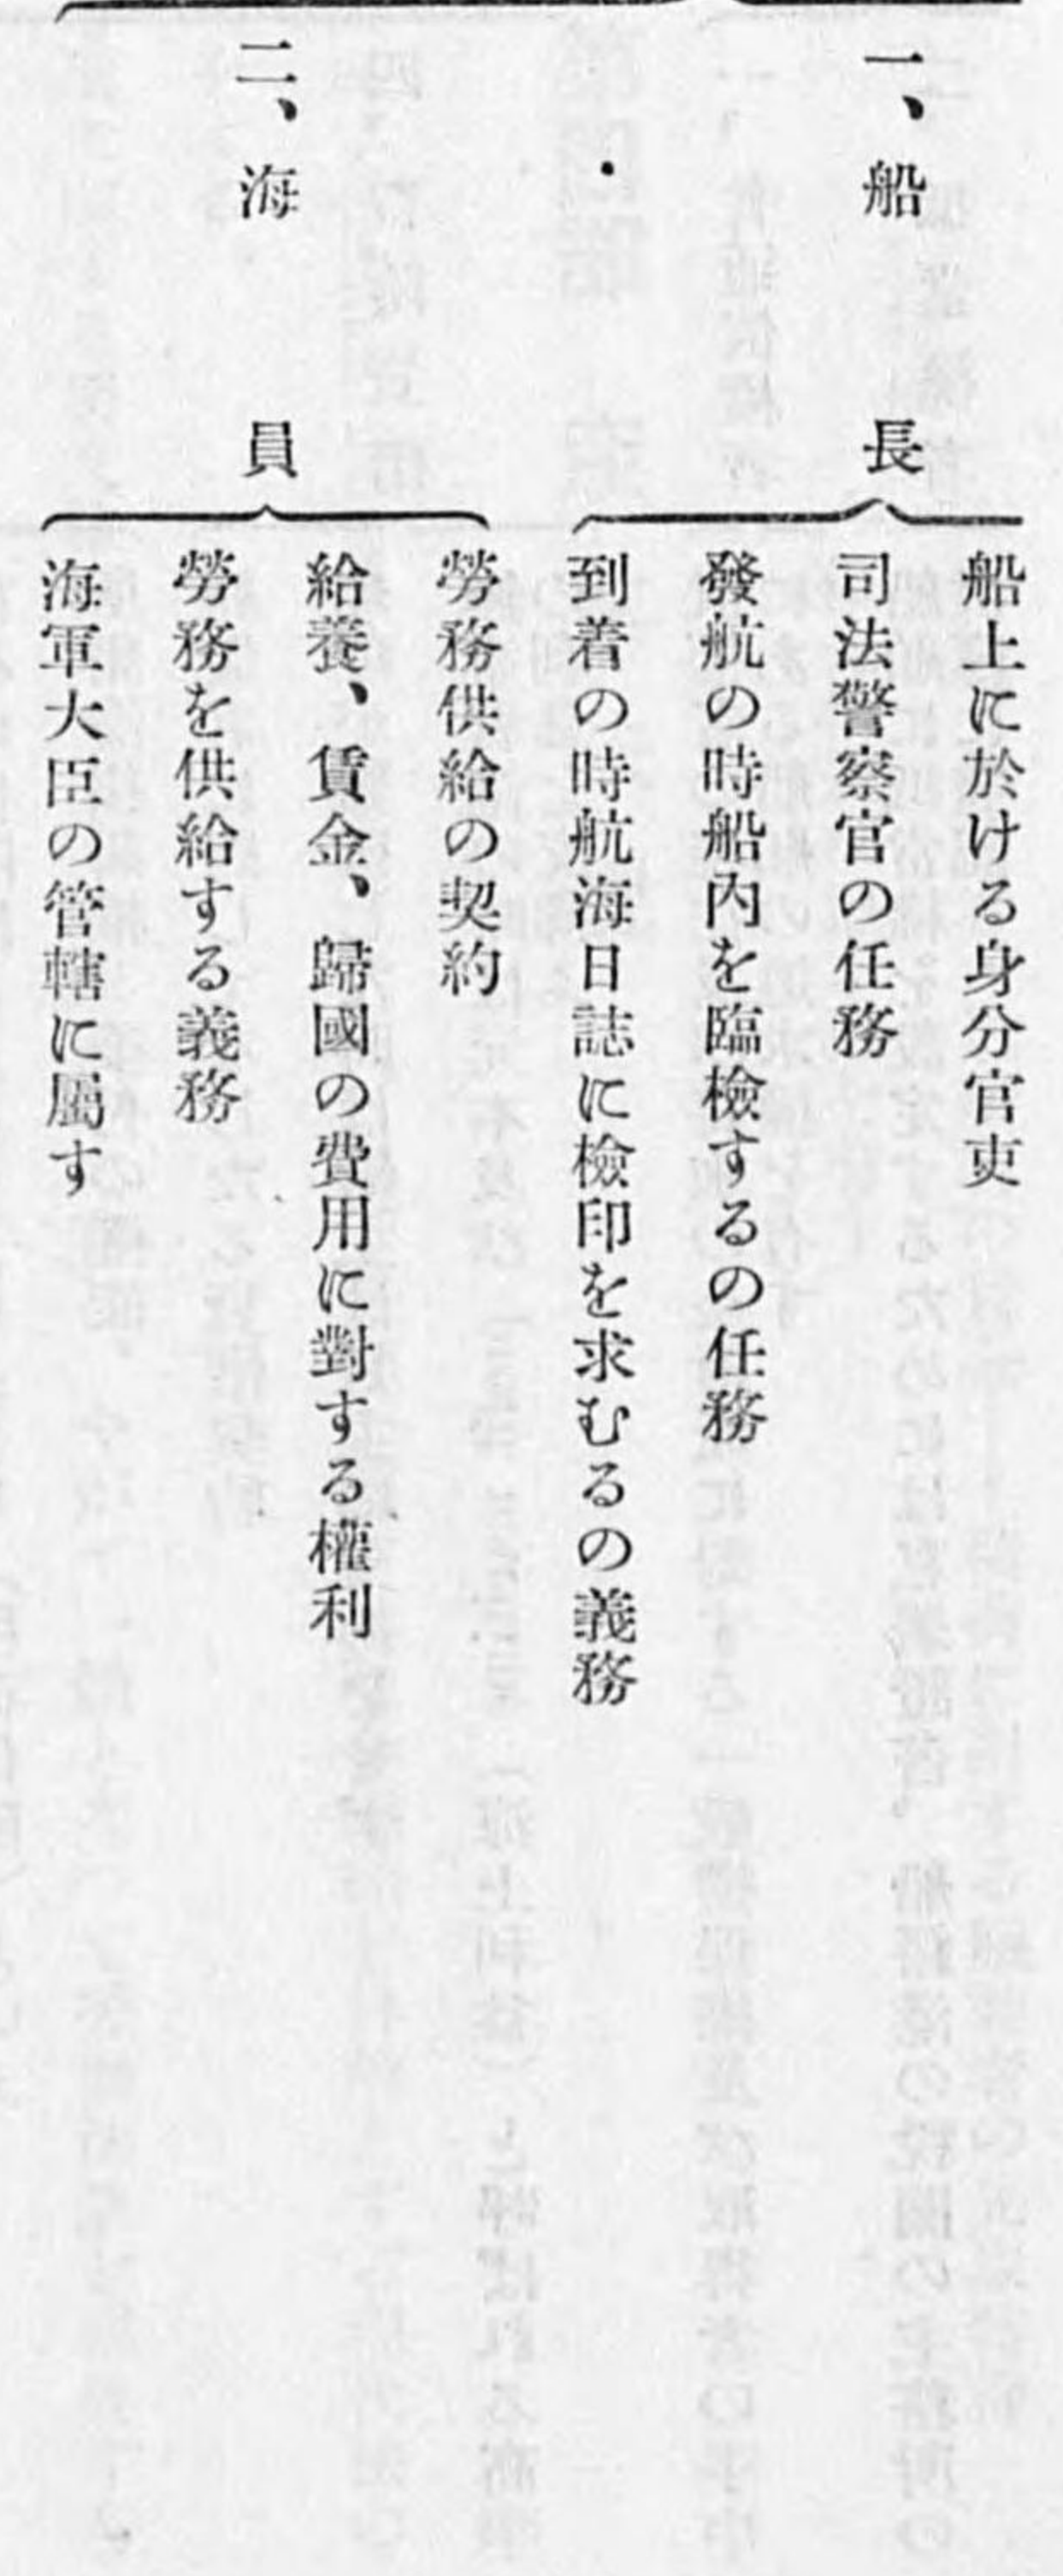 一、船長
船上に於ける身分官吏
司法警察官の任務
發航の時船內を臨檢するの任務
到着の時航海日誌に檢印を求むるの義務
二、海員
勞務供給の契約
給養、賃金、歸國の費用に對する權利
勞務を供給する義務
海軍大臣の管轄に屬す